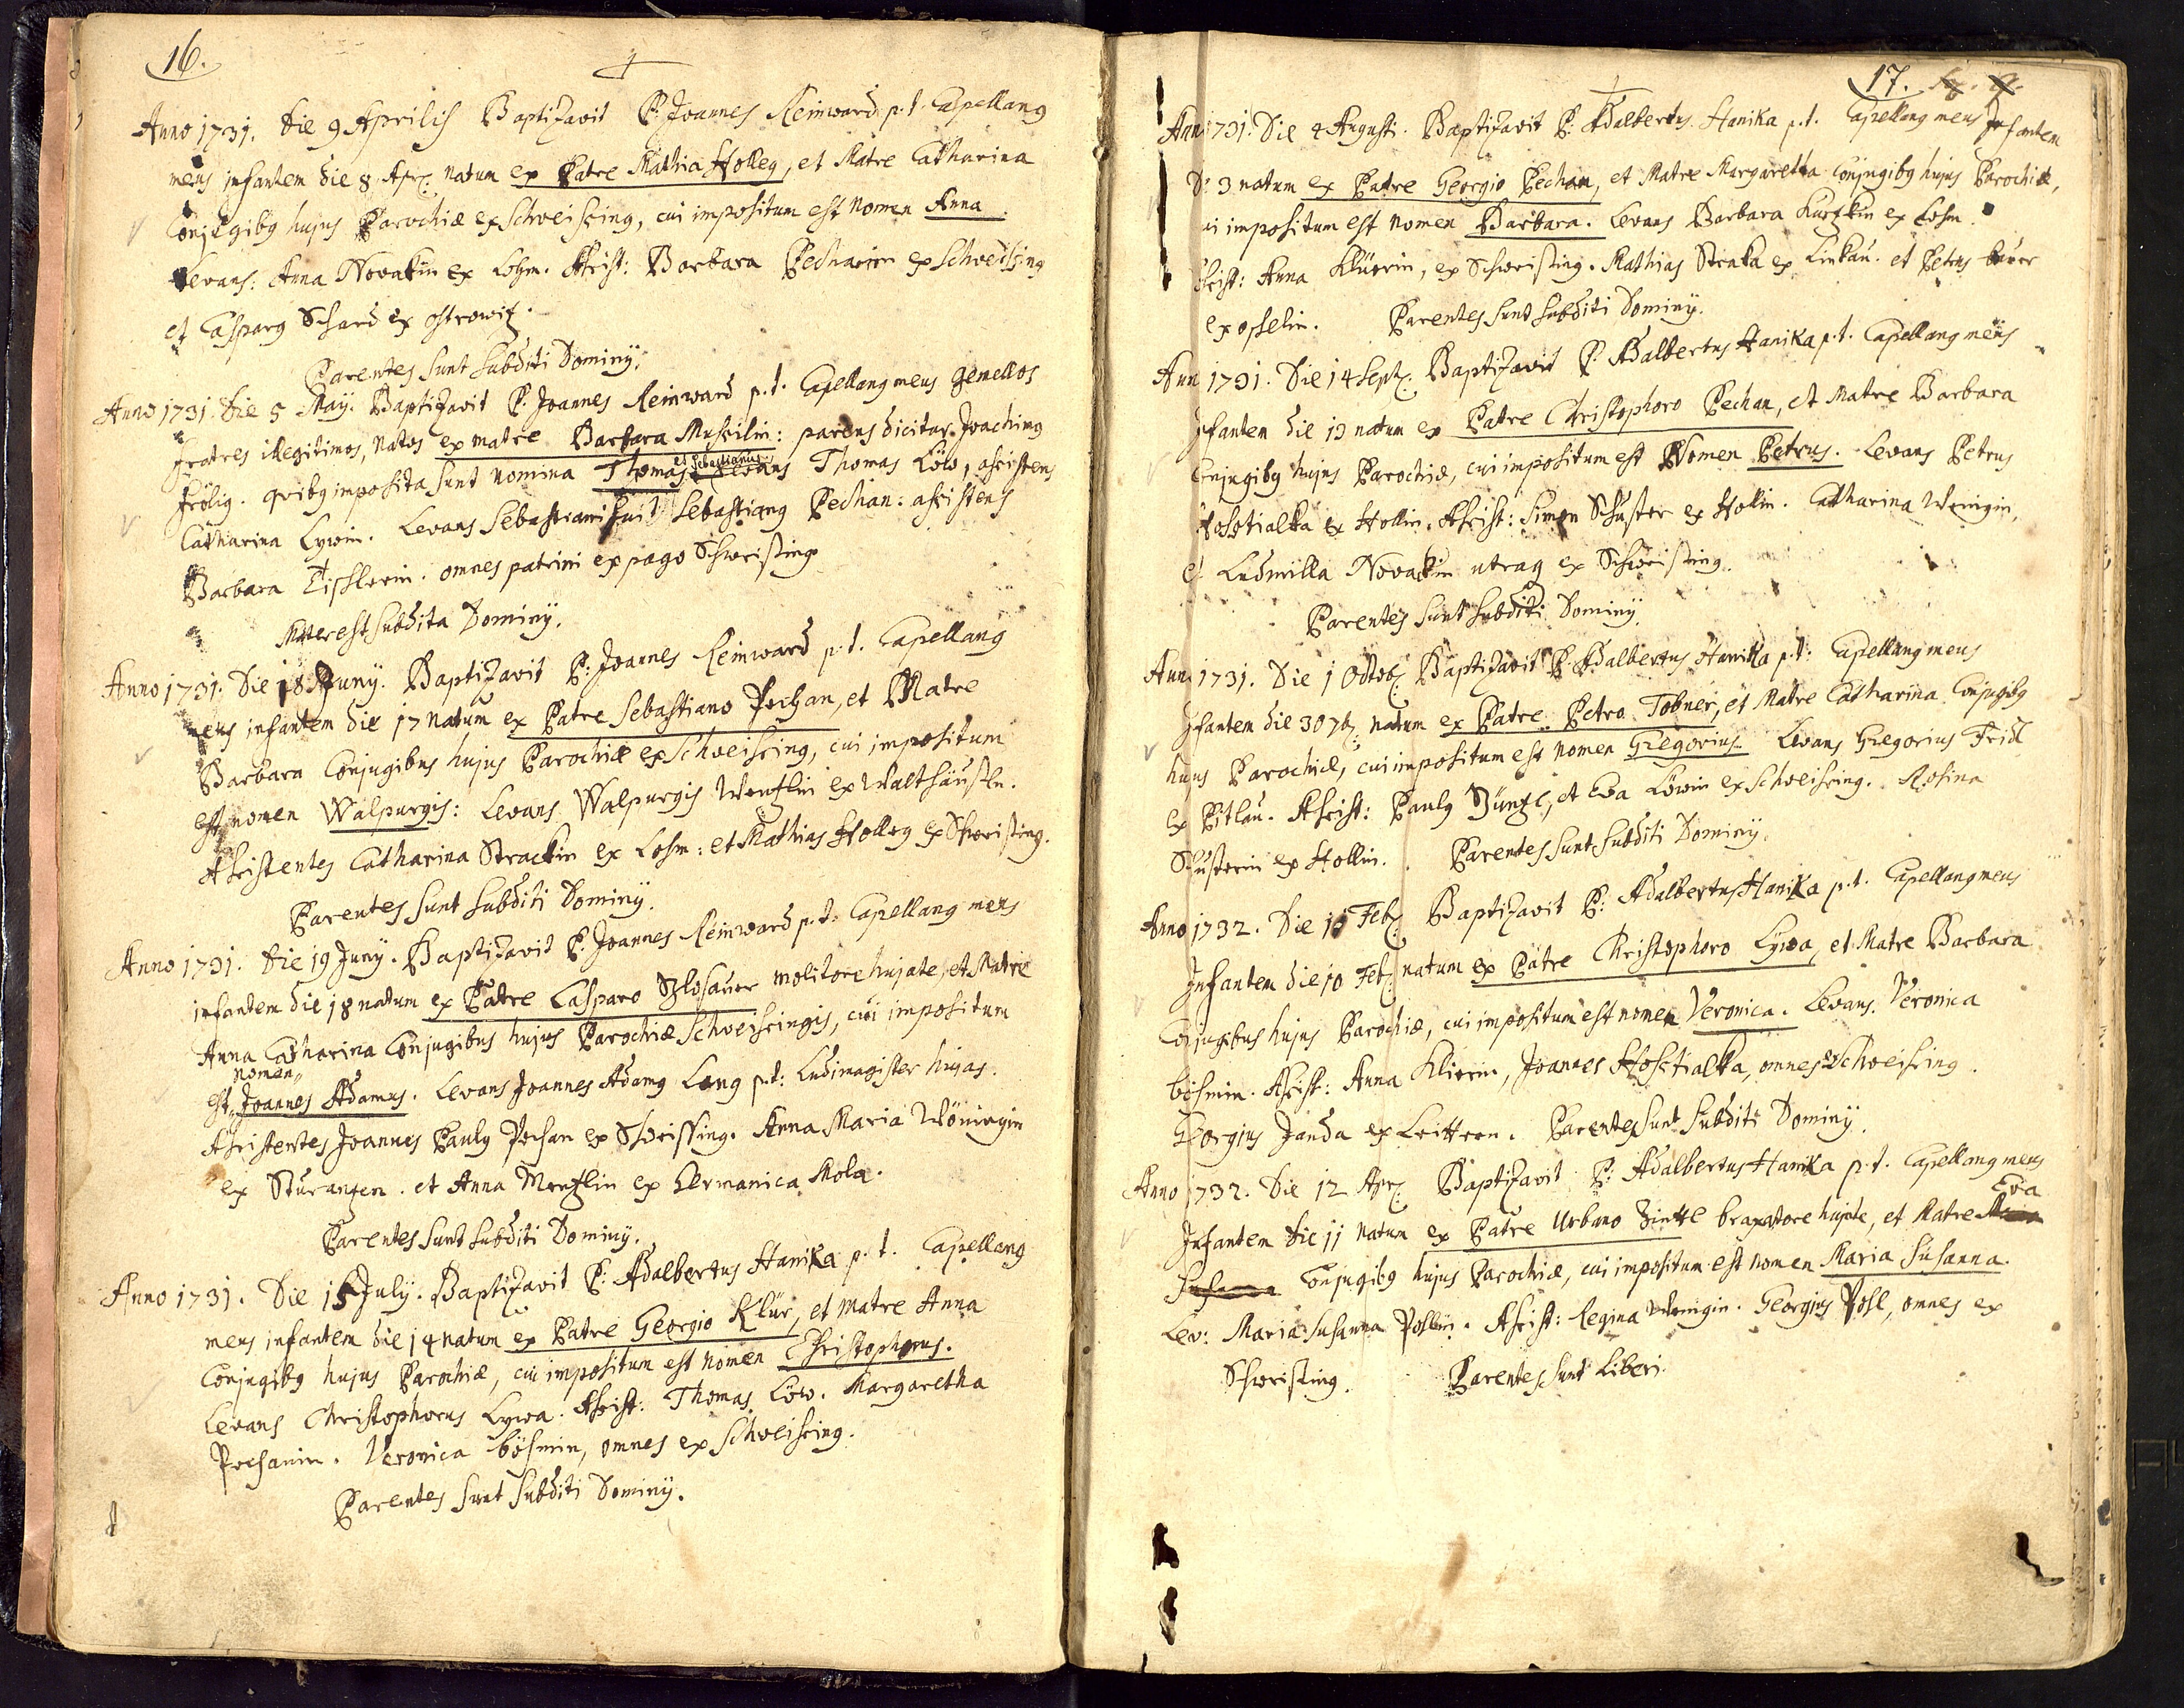 16.
Anno 1731. Die 9 Aprilis Baptizavit P. Joannes Reinward p. t. Capellang
meus infantem die 8 Apr: natum ex Patre Mathia Holleg, et Matre Catharina
Conjugibg hujus Parochiæ ex Schweising, cui impositum est Nomen Anna.
Levans: Anna Novakin ex Losm. Assist: Barbara Pechanin ex Schweising
et Casparg Schard ex Ostrowitz.
Parentes sunt subditi Dominÿ.
Anno 1731. Die 5 Maÿ. Baptizavit P. Joannes Reinward p. t. Capellang meus gemellos
fratres illegitimos, Natos ex matre Barbara Muscilin: parens dicitur Joachimg
frölig. qvibg imposita sunt nomina Thomas et Sebastianus. Levans Thomas Löw, assistens
Catharina Lywin. Levans Sebastiani fuit Sebastiang Pechan: assistens
Barbara Tischlerin. omnes patrini ex pago Schweising
Mater est subdita Dominÿ.
Anno 1731. Die 18 Junÿ. Baptizavit P: Joannes Reinward p. t. Capellang
meus infantem die 17 natum ex Patre Sebastiano Pechan, et Matre
Barbara Conjugibus hujus Parochiæ ex Schweising, cui impositum
est nomen Walpurgis: Levans Walpurgis Wentzlin ex Walthäusln.
Assistentes Catharina Strackin ex Losm: et Mathias Holleg ex Schweising.
Parentes sunt subditi Dominÿ.
Anno 1731. Die 19 Junÿ. Baptizavit P. Joannes Reinward p. t. Capellang meus
infantem die 18 natum ex Patre Casparo Szlosauer molitore hujate, et Matre
Anna Catharina Conjugibus hujus Parochiæ Schweisingis, cui impositum
est nomen Joannes Adamus. Levans Joannes Adamg Lang p. t: Ludimagister hujas.
Assistentes Joannes Paulg Pechan ex Schweissing. Anna Maria Wöningin
ex Sturanzen. et Anna Mentzlin ex Germanica Mola.
Parentes sunt subditi Dominÿ.
Anno 1731. Die 15 Julÿ. Baptizavit P: Adalbertus Hanika p. t. Capellang
meus infantem die 14 natum ex Patre Georgio Klür, et matre Anna
Conjugibg hujus Parochiæ, cui impositum est nomen Christophorus.
Levans Christophorus Lywa. Assist: Thomas Löw. Margaretha
Pechanin. Veronica Bösmin, omnes ex Schweising.
Parentes sunt subditi Dominÿ.
17.
Ann 1731. Die 4 Augusti. Baptizavit P: Adalbertus Hanika p. t. Capellang meus Infantem
D: 3 natum ex Patre Georgio Pechan, et Matre Margaretha Conjugibg hujus Parochiæ,
ui impositum est Nomen Barbara. Levans Barbara Kurtzkin ex Losm
Assist: Anna Klüerin, ex Schweising. Mathias Straka ex Linkau. et Petrus Bauer
ex Osselin. Parentes sunt subditi Dominÿ.
Ann 1731. Die 14 Sept: Baptizavit P. Adalbertus Hanika p. t. Capellang meus
Infantem die 13 natum ex Patre Christophoro Pechan, et Matre Barbara
Conjugibg hujus Parochiæ, cui impositum est Nomen Petrus. Levans Petrus
Hosstialka ex Hollin. Assist: Simon Schuster ex Hollin. Catharina Weinigin,
et Ludmilla Novackin utraq ex Schweising.
Parentes sunt subditi Dominÿ.
Ann 1731. Die 1 Octob: Baptizavit P. Adalbertus Hanika p. t: Capellang meus
Infantem die 30 7b: natum ex Patre Petro Tobner, et Matre Catharina Conjugibg
hujus Parochiæ, cui impositum est nomen Gregorius. Levans Gregorius Fridl
ex Pitlau. Assist: Paulg Züntzl, et Eva Löwin ex Schweising. Rosina
Schusterin ex Hollin. Parentes sunt subditi Dominÿ.
Anno 1732. Die 11 Feb: Baptizavit P: Adalbertus Hanika p. t. Capellang meus
Infantem die 10 Feb: natum ex Patre Christophoro Lywa, et Matre Barbara
Conjugibus hujus Parochiæ, cui impositum est nomen Veronica. Levans. Veronica
Bösmin. Assist: Anna Klierin, Joannes Hosstialka, omnes ex Schweising.
Georgius Janda ex Leittren. Parentes sunt subditi Dominÿ.
Anno 1732. Die 12 Apr: Baptizavit P: Adalbertus Hanika p. t. Capellang meus
Infantem die 11 natum ex Patre Urbano Zintte braxatore hujate, et Matre Eva
Conjugibg hujus Parochiæ, cui impositum est nomen Maria Susanna.
Lev: Maria Susanna Poslin. Assist: Regina Weinigin. Georgius Posl, omnes ex
Schweising. Parentes sunt liberi.